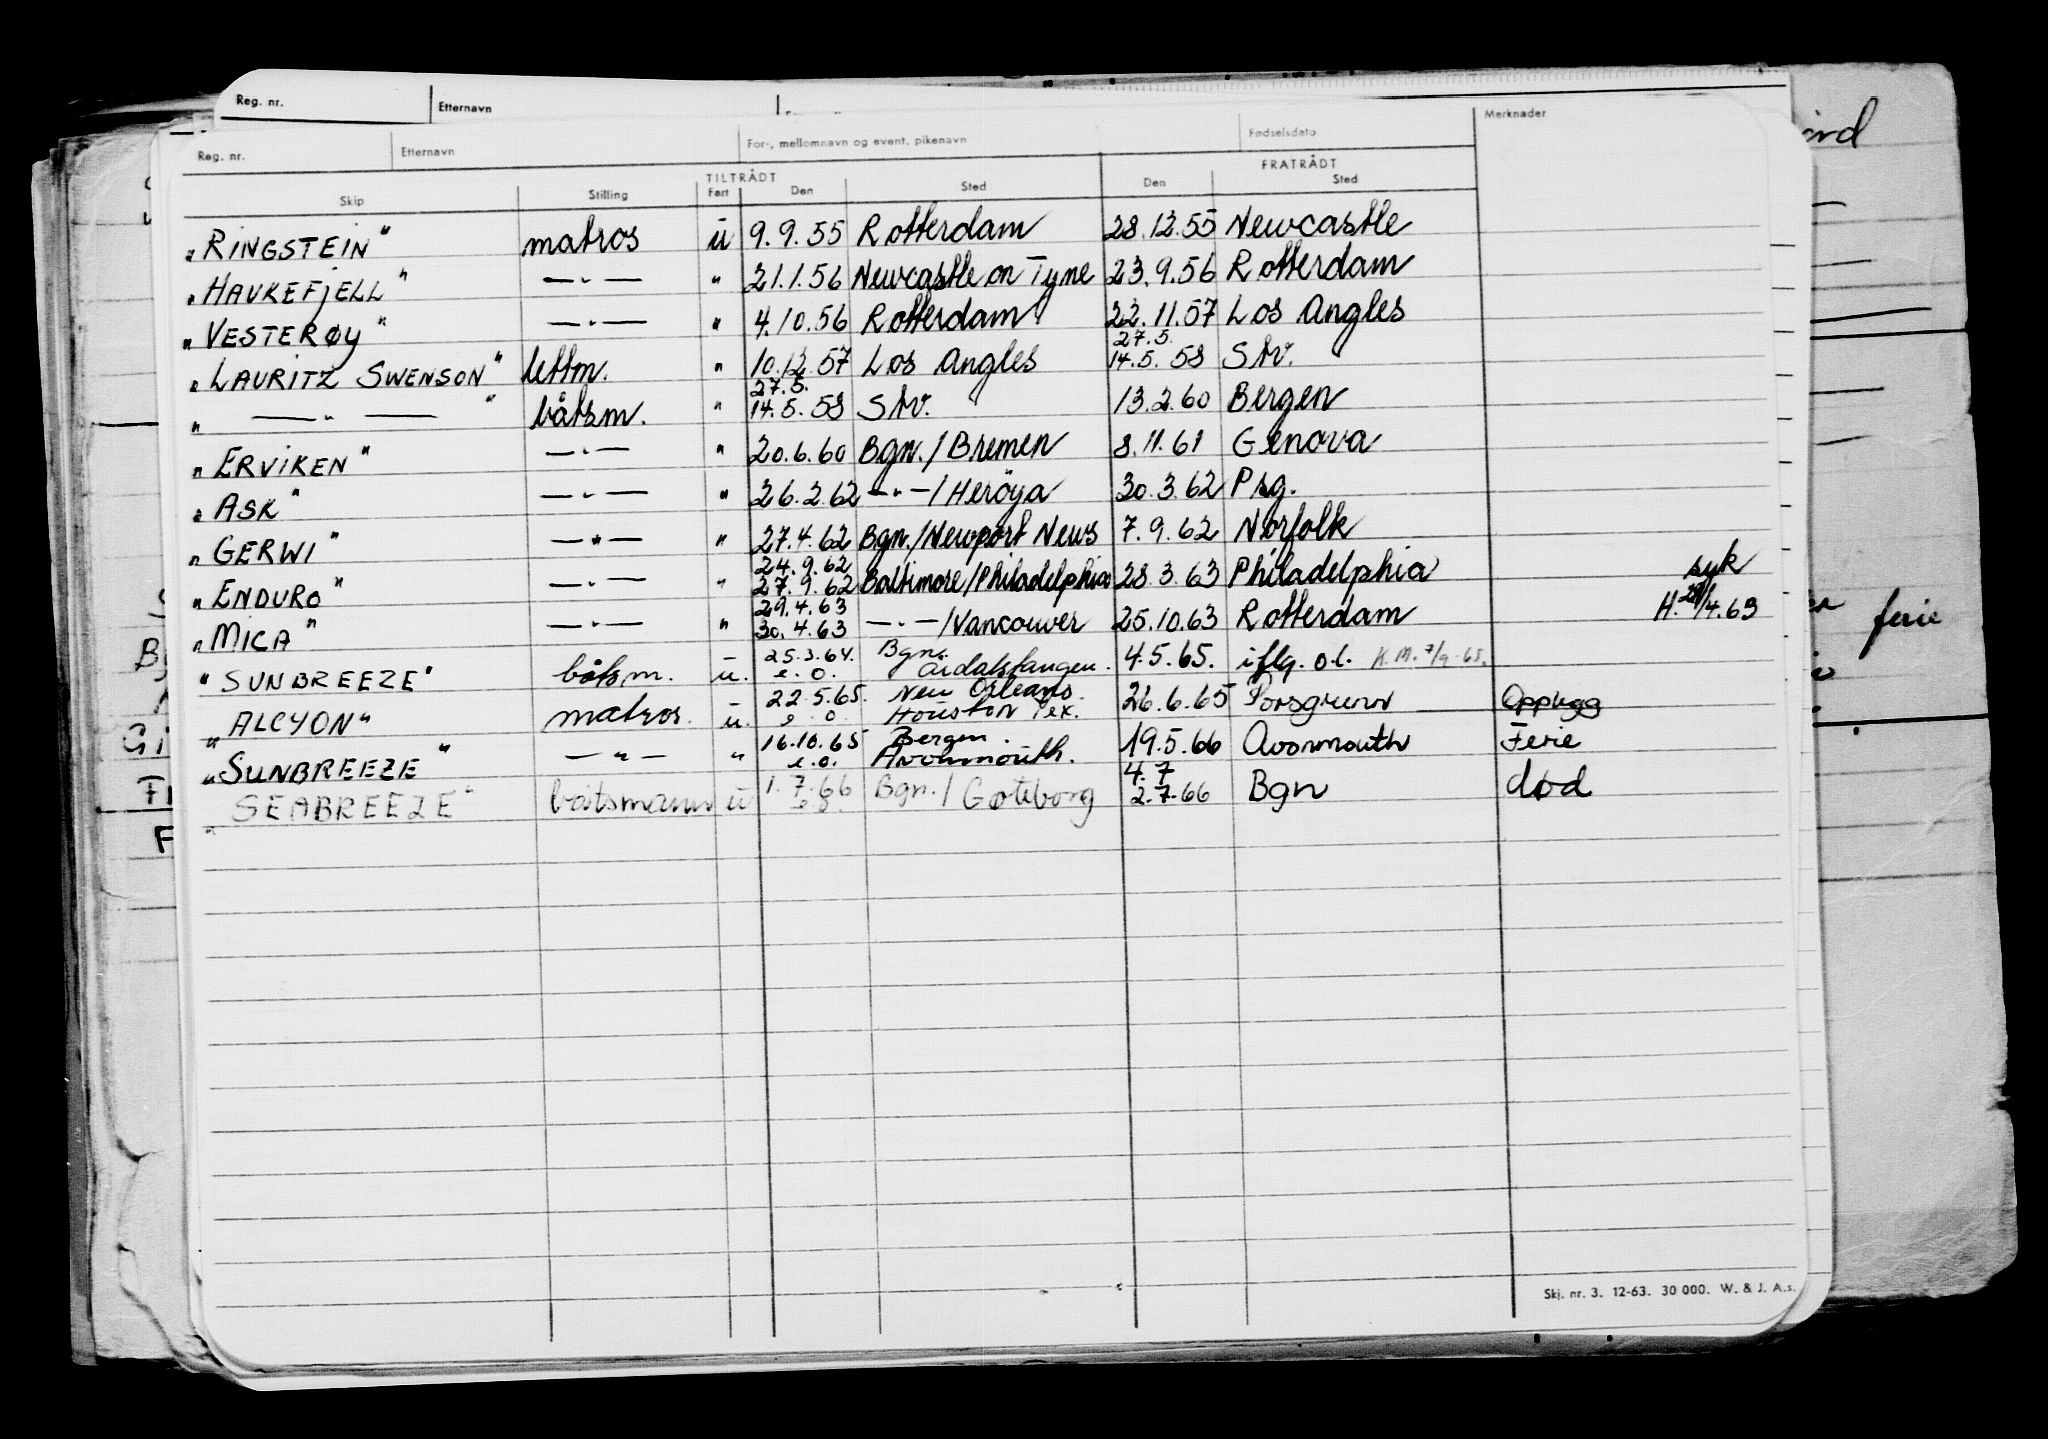 Reg. nr. Etternavn
Reg. nr. Etternavn For-, mellomnavn og event. pikenavn Fødselsdato Merknader
TILTRÅDT FRATRÅDT
Skip Stilling Fart Den Sted Den Sted
"RINGSTEIN" matros u 9.9.55 Rotterdam 28.12.55 Newcastle
"HAUKEFJELL" —"— " 21.1.56 Newcastle on Tyne 23.9.56 Rotterdam
"VESTERØY" —"— " 4.10.56 Rotterdam 22.11.57 Los Angles
27.5.
"LAURITZ SWENSON" lettm. " 10.12.57 Los Angles 14.5.58 Stv.
27.5.
" —"— " båtsm. " 14.5.58 Stv. 13.2.60 Bergen
"ERVIKEN" —"— " 20.6.60 Bgn./Bremen 8.11.61 Genova
"ASK" —"— " 26.2.62 —"—/Herøya 30.3.62 Psg.
"GERWI" —"— " 27.4.62 Bgn./Newport News 7.9.62 Norfolk
24.9.62 syk
"ENDURO" —"— " 27.9.62 Baltimore/Philadelphia 28.3.63 Philadelphia H. 29/4.63
29.4.63
"MICA" —"— " 30.4.63 —"—/Vancouver 25.10.63 Rotterdam
25.3.64. Bgn.
"SUNBREEZE" båtsm. u. e.o. Årdalstangen. 4.5.65. iflg. o.l. K.M. 7/9-65.
22.5.65. New Orleans
"ALCYON" matros. u. e.o. Houston Tex. 26.6.65 Porsgrunn Opplegg
16.10.65 Bergen.
"SUNBREEZE" —"— " e.o. Avonmouth. 19.5.66 Avonmouth Ferie
4.7
"SEABREEZE" båtsmann u 1.7.66 Bgn./Gøteborg 2.7.66 Bgn død
e.o.
ferie
Skj. nr. 3. 12-63. 30 000. W. & J. A.s.